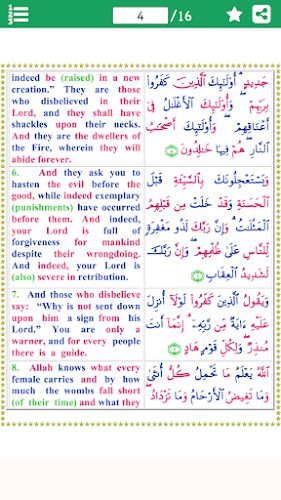 4 /16
indeed be (raised) in a new
creation.” They are those
who disbelieved in their
Lord, and they shall have
shackles upon their necks.
And they are the dwellers of
the Fire, wherein they will
abide forever.
جَدِيدٍ ۗ أُو۟لَـٰٓئِكَ ٱلَّذِينَ كَفَرُوا۟
بِرَبِّهِمْ ۖ وَأُو۟لَـٰٓئِكَ ٱلْأَغْلَـٰلُ فِىٓ
أَعْنَاقِهِمْ ۖ وَأُو۟لَـٰٓئِكَ أَصْحَـٰبُ
ٱلنَّارِ ۖ هُمْ فِيهَا خَـٰلِدُونَ ٥
6. And they ask you to
hasten the evil before the
good, while indeed exemplary
(punishments) have occurred
before them. And indeed,
your Lord is full of
forgiveness for mankind
despite their wrongdoing.
And indeed, your Lord is
(also) severe in retribution.
وَيَسْتَعْجِلُونَكَ بِٱلسَّيِّئَةِ قَبْلَ
ٱلْحَسَنَةِ وَقَدْ خَلَتْ مِن قَبْلِهِمُ
ٱلْمَثُلَـٰتُ ۗ وَإِنَّ رَبَّكَ لَذُو مَغْفِرَةٍ
لِّلنَّاسِ عَلَىٰ ظُلْمِهِمْ ۖ وَإِنَّ رَبَّكَ
لَشَدِيدُ ٱلْعِقَابِ ٦
7. And those who disbelieve
say: “Why is not sent down
upon him a sign from his
Lord.” You are only a
warner, and for every people
there is a guide.
وَيَقُولُ ٱلَّذِينَ كَفَرُوا۟ لَوْلَآ أُنزِلَ
عَلَيْهِ ءَايَةٌ مِّن رَّبِّهِۦٓ ۗ إِنَّمَآ أَنتَ
مُنذِرٌ ۖ وَلِكُلِّ قَوْمٍ هَادٍ ٧
8. Allah knows what every
female carries and by how
much the wombs fall short
(of their time) and what they
ٱللَّهُ يَعْلَمُ مَا تَحْمِلُ كُلُّ أُنثَىٰ
وَمَا تَغِيضُ ٱلْأَرْحَامُ وَمَا تَزْدَادُ ۖ